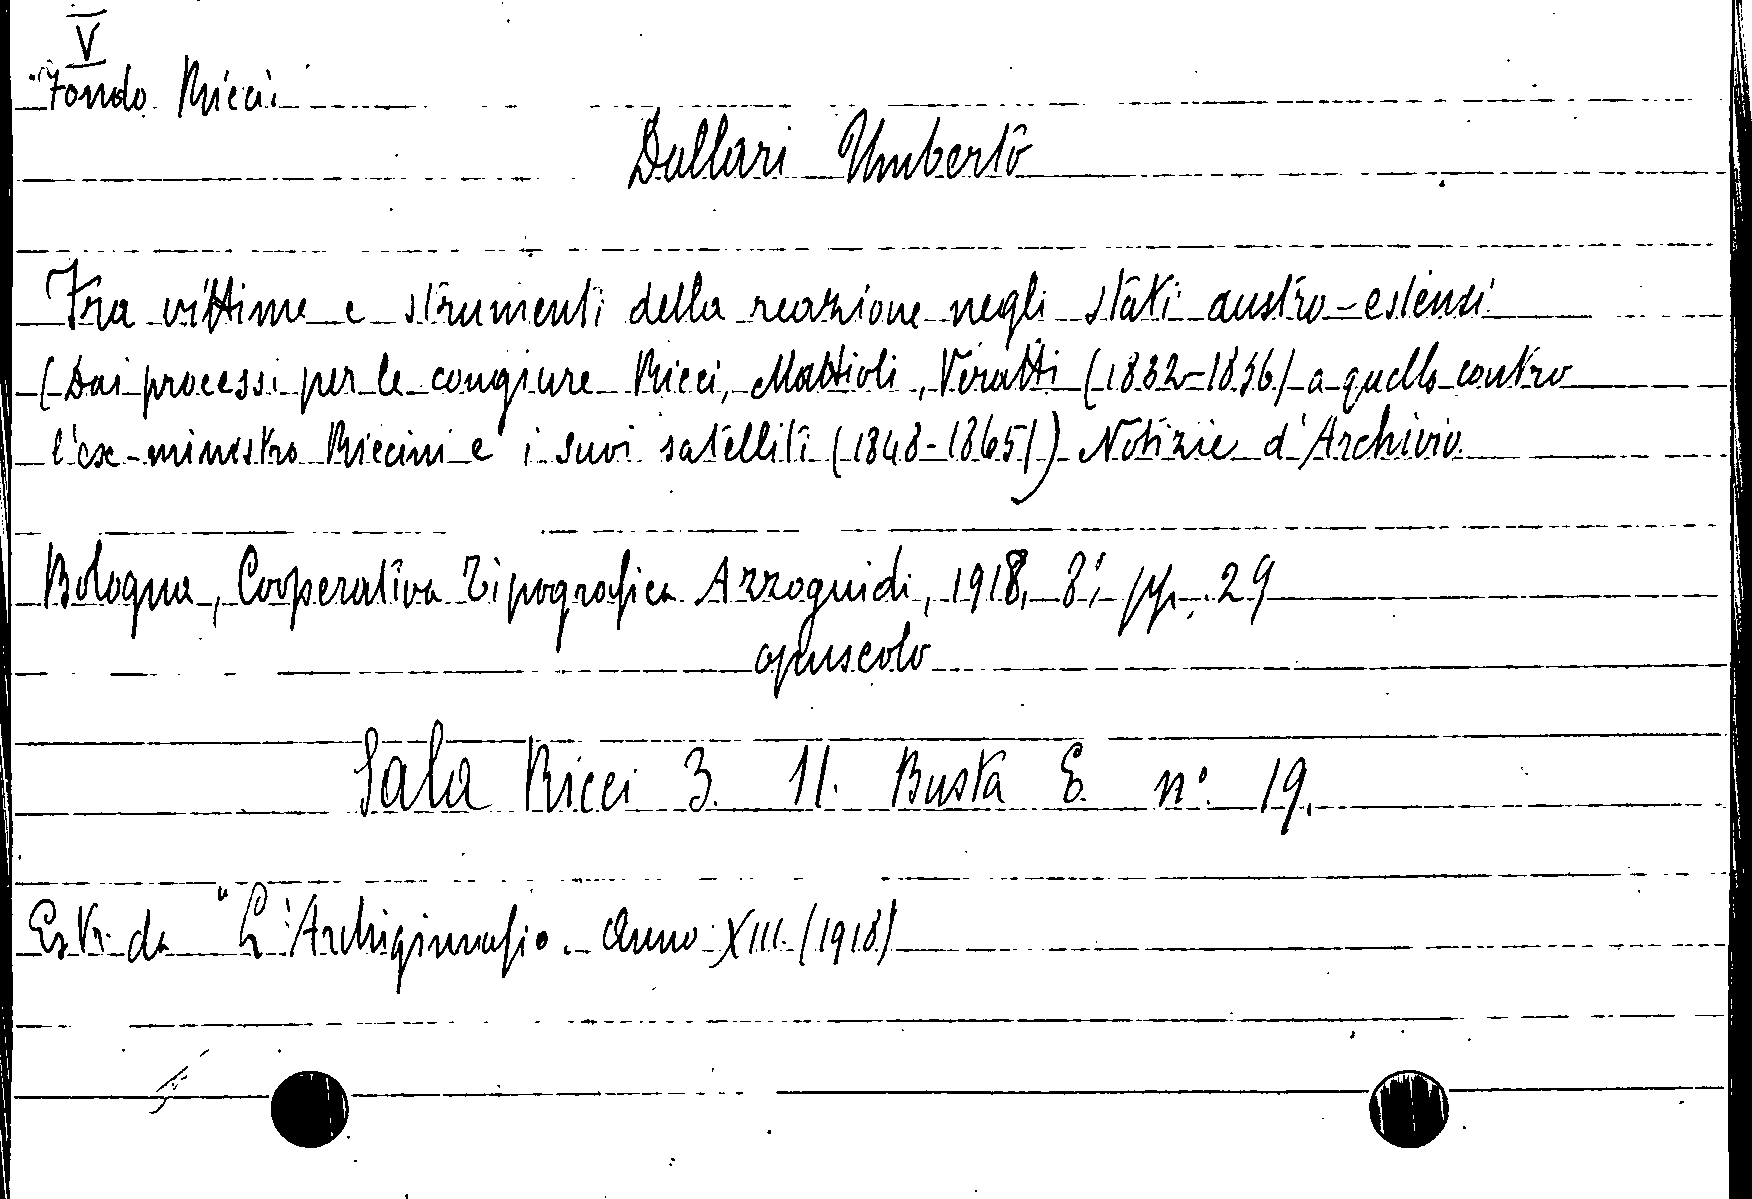 V
Fondo Ricci
Dallari Umberto
Fra vittime e strumenti della reazione negli stati austro-estensi
(Dai processi per le congiure Ricci, Mattioli, Veratti (1832-1836) a quello contro
l'ex-ministro Riccini e i suoi satelliti (1848-1865)) Notizie d'Archivio
Bologna, Cooperativa Tipografica Azzoguidi, 1918, 8°, pp. 29
opuscolo
Sala Ricci 3. 11. Busta E. n° 19.
Estr. da "L'Archiginnasio. Anno XIII. (1918)